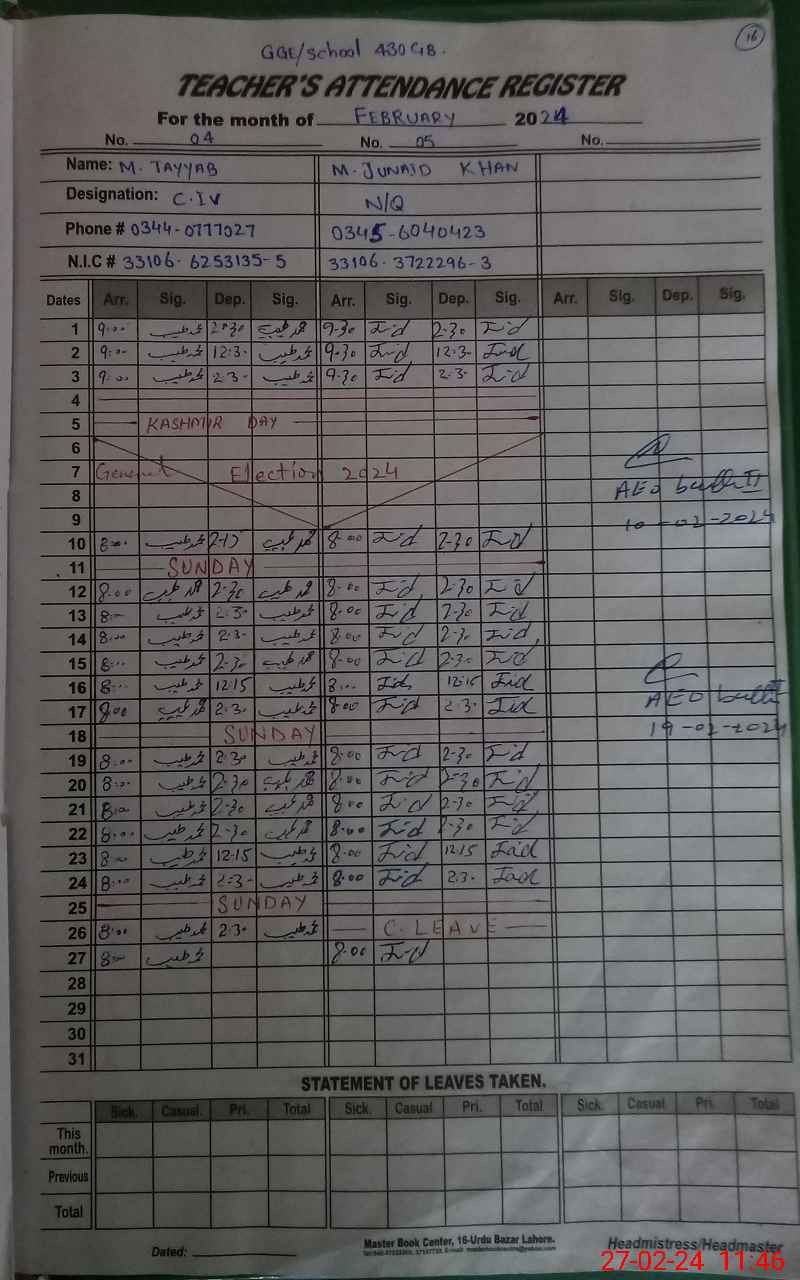 16
GGE/School 430 GB.
TEACHER'S ATTENDANCE REGISTER
For the month of FEBRUARY 2024
No. 04 No. 05 No.
Name: M. TAYYAB M. JUNAID KHAN
Designation: C.IV N/Q
Phone # 0344-0777027 0345-6040423
N.I.C # 33106-6253135-5 33106-3722296-3
Dates Arr. Sig. Dep. Sig. Arr. Sig. Dep. Sig. Arr. Sig. Dep. Sig.
1 9:00 محمد طیب 2:30 محمد طیب 9-30 2-30
2 9:00 محمد طیب 12:30 محمد طیب 9-30 12:30
3 9:00 محمد طیب 2:30 محمد طیب 9-30 2:30
4
5 KASHMIR DAY
6
7 General Election 2024
8 AEO
9 10-02-2024
10 8:00 محمد طیب 2-15 محمد طیب 8-00 2-30
11 SUNDAY
12 8:00 محمد طیب 2-30 محمد طیب 8-00 2-30
13 8:00 محمد طیب 2:30 محمد طیب 8:00 2-30
14 8:00 محمد طیب 2:30 محمد طیب 8:00 2-30
15 8:00 محمد طیب 2-30 محمد طیب 8-00 2-30
16 8:00 محمد طیب 12:15 محمد طیب 8:00 12-15
17 8:00 محمد طیب 2:30 محمد طیب 8:00 2:30 AEO
18 SUNDAY 19-02-2024
19 8:00 محمد طیب 2:30 محمد طیب 8:00 2-30
20 8:00 محمد طیب 2-30 محمد طیب 8:00 2-30
21 8:00 محمد طیب 2-30 محمد طیب 8:00 2-30
22 8:00 محمد طیب 2-30 محمد طیب 8:00 2-30
23 8:00 محمد طیب 12-15 محمد طیب 8-00 12:15
24 8:00 محمد طیب 2:30 محمد طیب 8:00 2:30
25 SUNDAY
26 8:00 محمد طیب 2:30 محمد طیب C.LEAVE
27 8:00 محمد طیب 8:00
28
29
30
31
STATEMENT OF LEAVES TAKEN.
Sick. Casual. Pri. Total Sick. Casual Pri. Total Sick. Casual Pri. Total
This month.
Previous
Total
Dated: Master Book Center, 16-Urdu Bazar Lahore. Headmistress/Headmaster
27-02-24 11:46